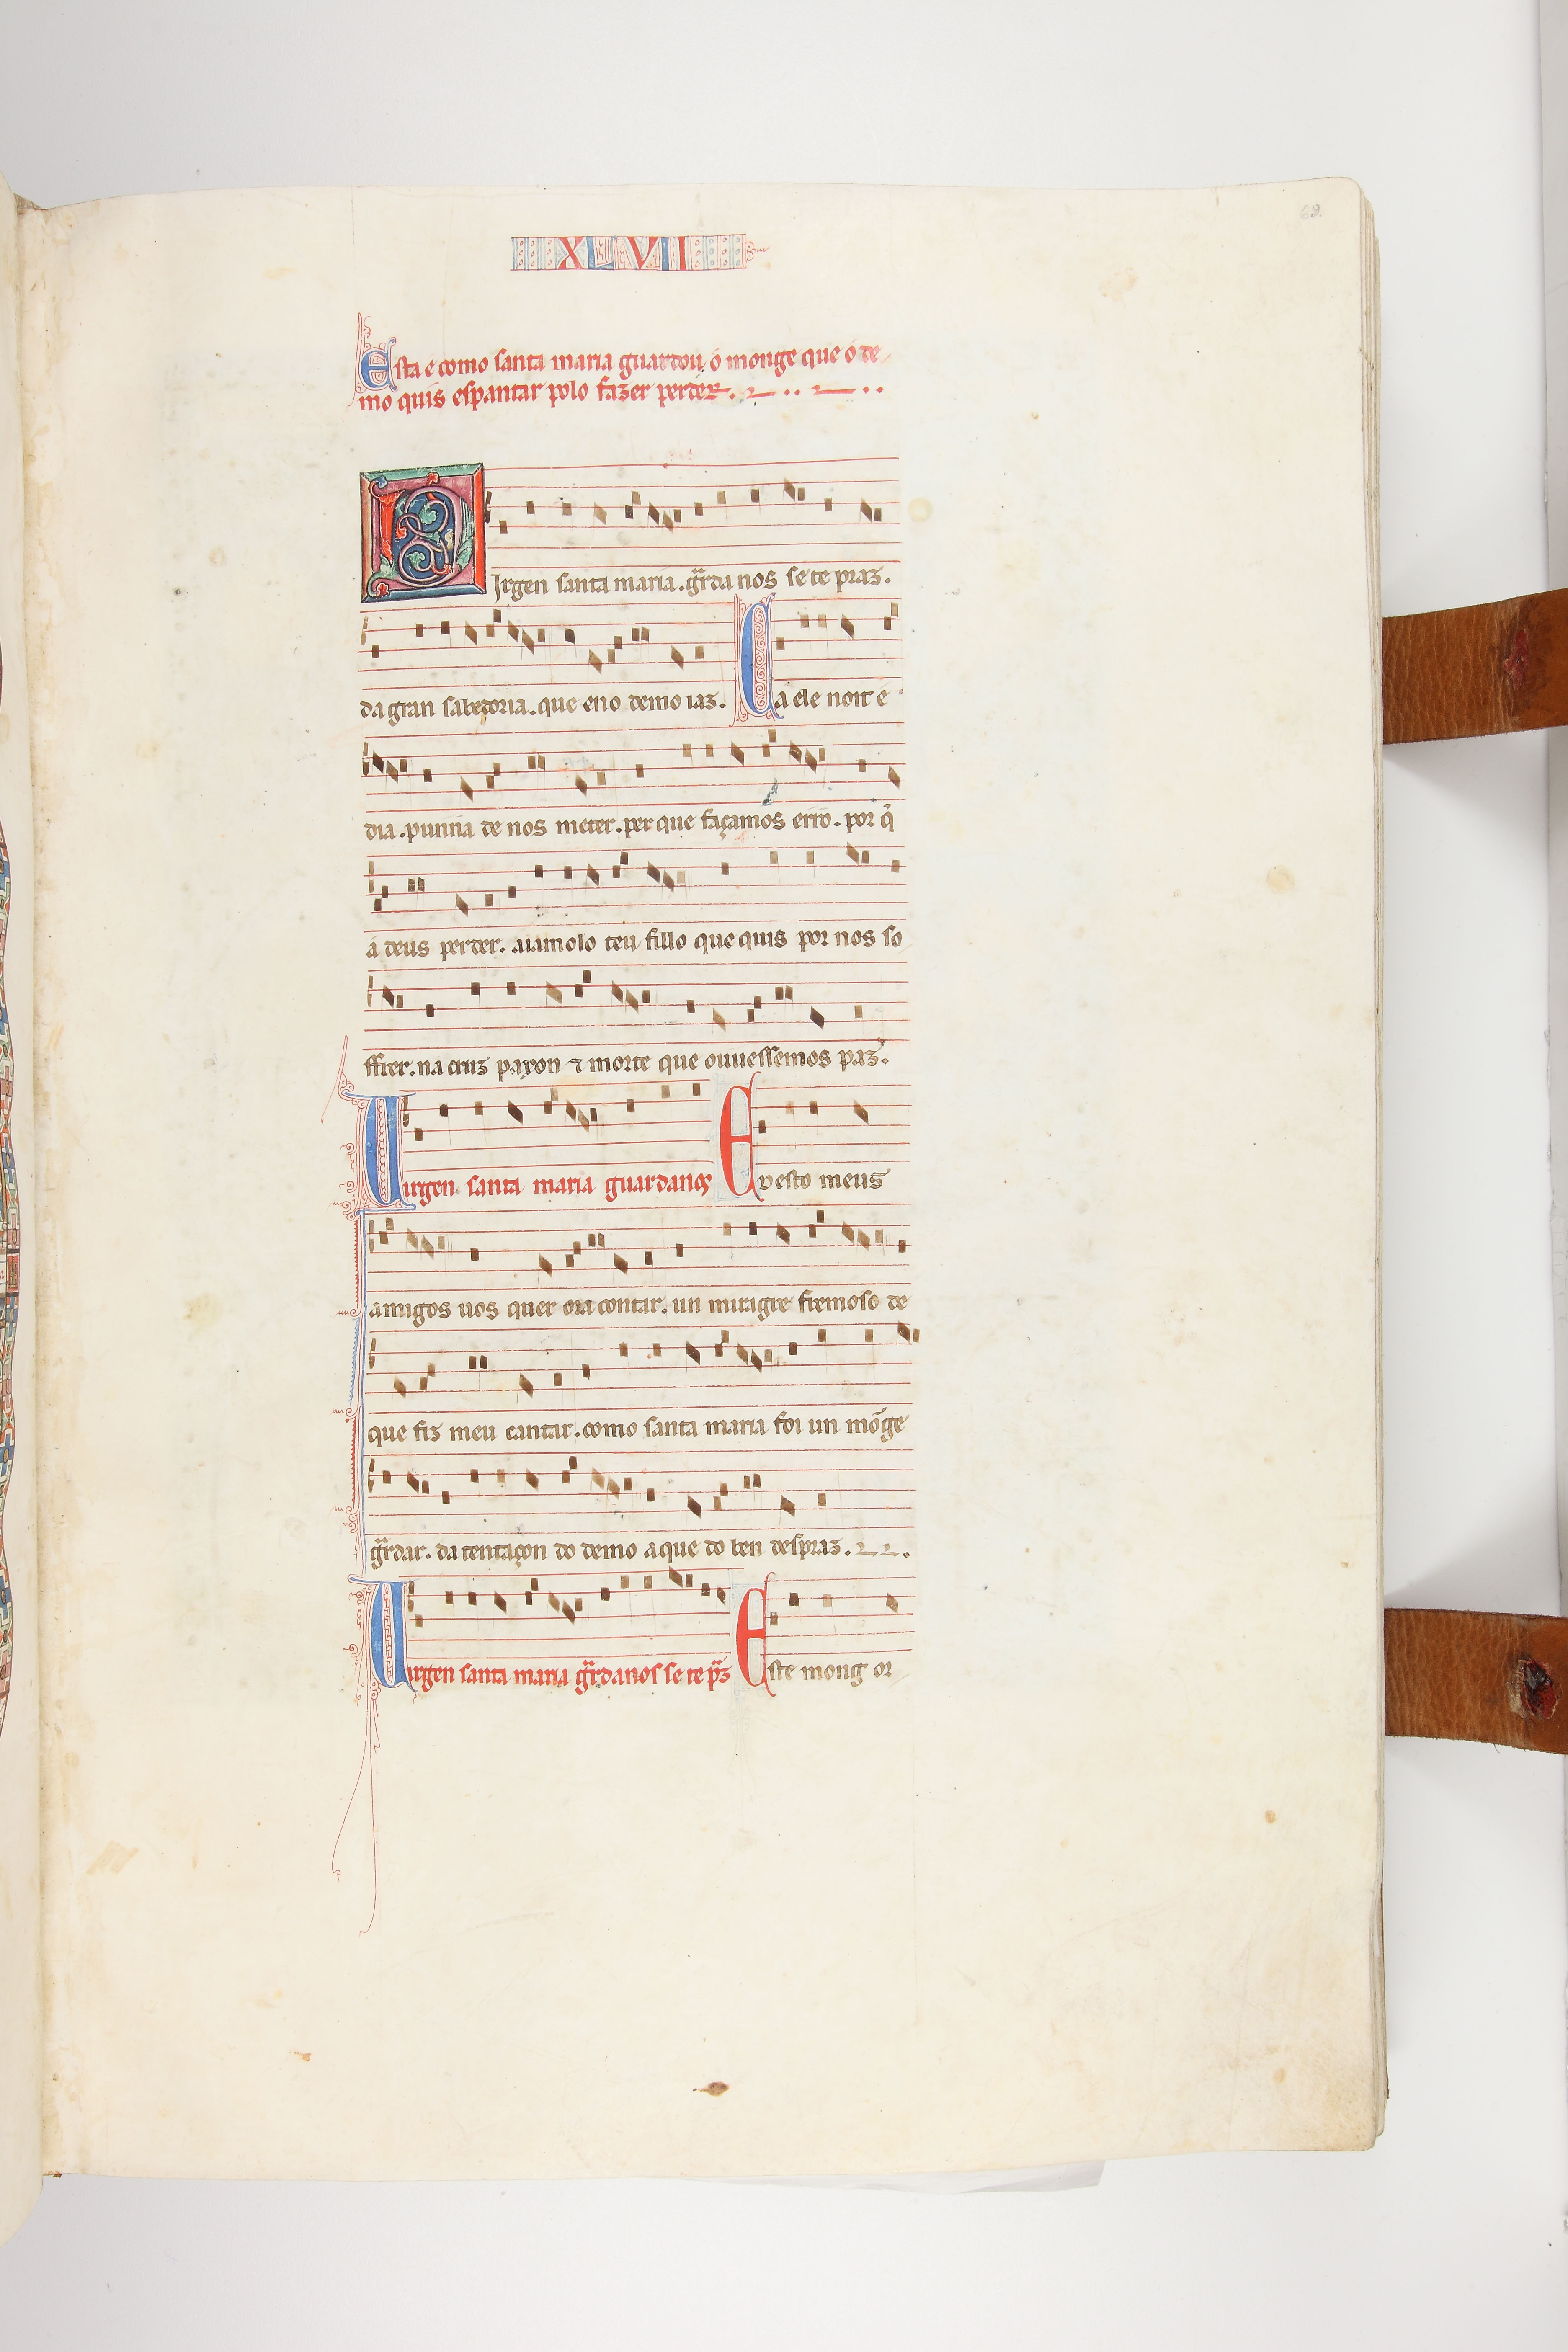 69.
XLVII
Esta e como santa maria guardou o monge que o de
mo quis espantar polo fazer perder.
Uirgen santa maria. g̃rda nos se te praz.
da gran sabedoria. que eno demo iaz. Ca ele noit e
dia. punna de nos meter. per que façamos erro. por q̇
a deus perder. aiamolo teu fillo que quis por nos so
ffrer. na cruz paxon ⁊ morte que ouuessemos paz.
Uirgen santa maria guardanos E desto meus
amigos uos quer ora contar. un miragre fremoso de
que fiz meu cantar. como santa maria foi un mõge
g̃rdar. da tentaçon do demo a que do ben despraz.
Uirgen santa maria g̃rdanos se te p̃z Este mong or